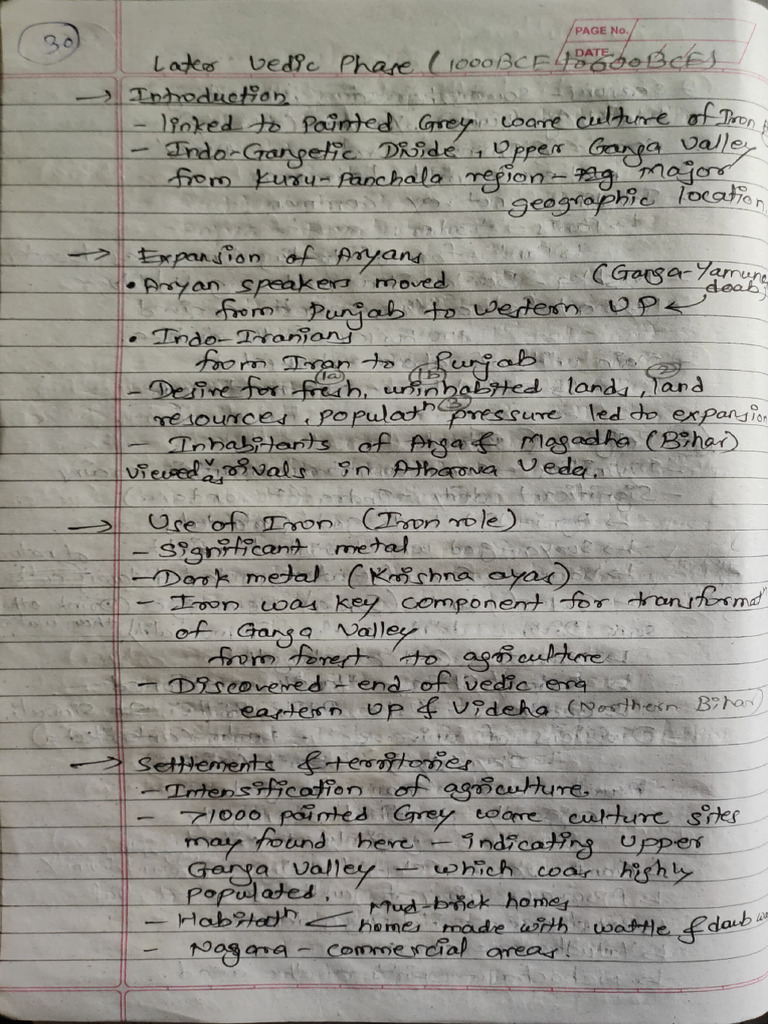 30
PAGE No.
DATE
Later Vedic Phase (1000BCE to 600BCE)
→ Introduction
- linked to Painted Grey ware culture of Iron
- Indo-Gangetic Divide, Upper Ganga Valley
from Kuru-Panchala region - major
geographic location
→ Expansion of Aryans
• Aryan speakers moved (Ganga-Yamuna
doab)
from Punjab to western UP ←
• Indo-Iranians
from Iran to Punjab
(1a) (1b) (2)
- Desire for fresh, uninhabited lands, land
(3)
resources, populatⁿ pressure led to expansion
- Inhabitants of Anga & Magadha (Bihar)
viewed as rivals in Atharva Veda.
→ Use of Iron (Iron role)
- Significant metal
- Dark metal (Krishna ayas)
- Iron was key component for transformatⁿ
of Ganga Valley
from forest to agriculture
- Discovered - end of vedic era
eastern UP & Videha (Northern Bihar)
→ Settlements & territories
- Intensification of agriculture.
- >1000 painted Grey ware culture sites
may found here - indicating upper
Ganga Valley - which was highly
populated.
Mud-brick homes
- Habitatⁿ < homes made with wattle & daub
- Nagara - commercial areas.